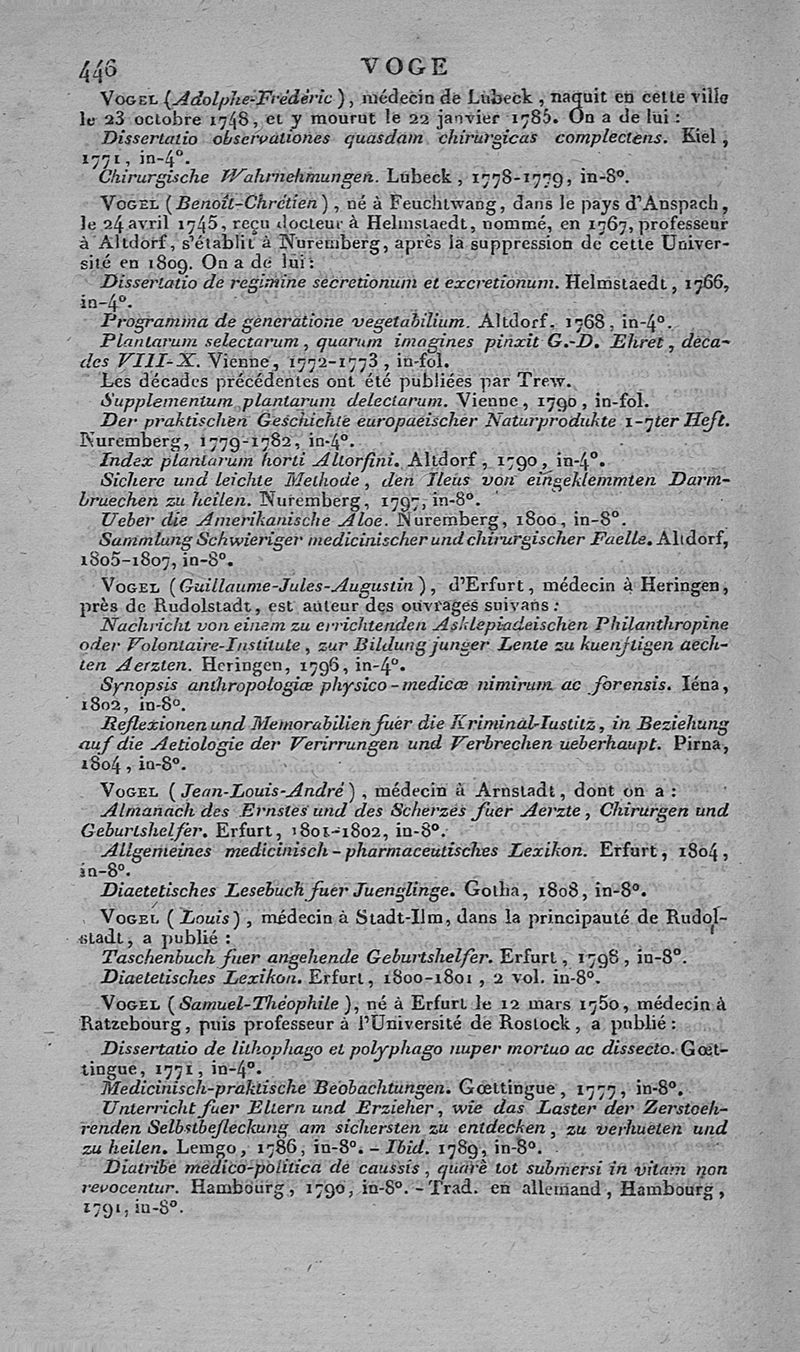 446 VOGE
VOGEL (Adolphe-Frédéric), médecin de Lubeck, naquit en cette ville
le 23 octobre 1748, et y mourut le 22 janvier 1785. On a de lui :
Dissertatio observationes quasdam chirurgicas complectens. Kiel,
1771, in-4°.
Chirurgische Wahrnehmungen. Lubeck, 1778-1779, in-8°.
VOGEL (Benoît-Chrétien), né à Feuchtwang, dans le pays d'Anspach,
le 24 avril 1745, reçu docteur à Helmstaedt, nommé, en 1767, professeur
à Altdorf, s'établit à Nuremberg, après la suppression de cette Univer-
sité en 1809. On a de lui :
Dissertatio de regimine secretionum et excretionum. Helmstaedt, 1766,
in-4°.
Programma de generatione vegetabilium. Altdorf, 1768, in-4°.
Plantarum selectarum, quarum imagines pinxit G.-D. Ehret, deca-
des VIII-X. Vienne, 1772-1773, in-fol.
Les décades précédentes ont été publiées par Trew.
Supplementum plantarum delectarum. Vienne, 1790, in-fol.
Der praktischen Geschichte europaeischer Naturprodukte 1-7ter Heft.
Nuremberg, 1779-1782, in-4°.
Index plantarum horti Altorfini. Altdorf, 1790, in-4°.
Sichere und leichte Methode, den Ileus von eingeklemmten Darm-
bruechen zu heilen. Nuremberg, 1797, in-8°.
Ueber die Amerikanische Aloe. Nuremberg, 1800, in-8°.
Sammlung Schwieriger medicinischer und chirurgischer Faelle. Altdorf,
1805-1807, in-8°.
VOGEL (Guillaume-Jules-Augustin), d'Erfurt, médecin à Heringen,
près de Rudolstadt, est auteur des ouvrages suivans :
Nachricht von einem zu errichtenden Asklepiadeischen Philanthropine
oder Volontaire-Institute, zur Bildung junger Lente zu kuenftigen aech-
ten Aerzten. Heringen, 1796, in-4°.
Synopsis anthropologiæ physico-medicæ nimirum ac forensis. Iéna,
1802, in-8°.
Reflexionen und Memorabilien fuer die Kriminal-Iustitz, in Beziehung
auf die Aetiologie der Verirrungen und Verbrechen ueberhaupt. Pirna,
1804, in-8°.
VOGEL (Jean-Louis-André), médecin à Arnstadt, dont on a :
Almanach des Ernstes und des Scherzes fuer Aerzte, Chirurgen und
Geburtshelfer. Erfurt, 1801-1802, in-8°.
Allgemeines medicinisch-pharmaceutisches Lexikon. Erfurt, 1804,
in-8°.
Diaetetisches Lesebuch fuer Juenglinge. Gotha, 1808, in-8°.
VOGEL (Louis), médecin à Stadt-Ilm, dans la principauté de Rudol-
stadt, a publié :
Taschenbuch fuer angehende Geburtshelfer. Erfurt, 1798, in-8°.
Diaetetisches Lexikon. Erfurt, 1800-1801, 2 vol. in-8°.
VOGEL (Samuel-Théophile), né à Erfurt le 12 mars 1750, médecin à
Ratzebourg, puis professeur à l'Université de Rostock, a publié :
Dissertatio de lithophago et polyphago nuper mortuo ac dissecto. Gœt-
tingue, 1771, in-4°.
Medicinisch-praktische Beobachtungen. Gœttingue, 1777, in-8°.
Unterricht fuer Eltern und Erzieher, wie das Laster der Zerstoeh-
renden Selbstbefleckung am sichersten zu entdecken, zu verhueten und
zu heilen. Lemgo, 1786, in-8°. - Ibid. 1789, in-8°.
Diatribe medico-politica de caussis, quarè tot submersi in vitam non
revocentur. Hambourg, 1790, in-8°. - Trad. en allemand, Hambourg,
1791, in-8°.